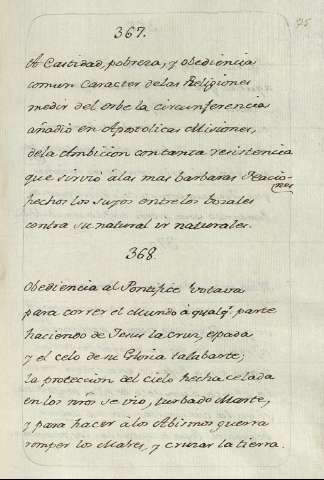 75
367.
A Castidad, pobreza, y obediencia
comun caracter delas Religiones
medir del orbe la circunferencia
añadió en Apostolicas Misiones,
dela Ambicion con tanta resistencia
que sirvió álas mas barbaras Nacio=
nes
hechos los suyos entre los
contra su natural ir naturales.
368.
Obediencia al Pontifice votava
para correr el Mundo á qualq.r parte
haciendo de Jesus la cruz, espada
y el celo de su Gloria talabarte;
la proteccion del cielo hecha celada
en los ntr̃os se vio, turbado Marte,
y para hacer álos Abismos guerra
romper los Mares, y cruzar la tierra.